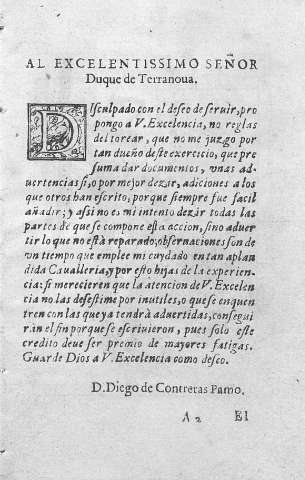 AL EXCELENTISSIMO SEÑOR
Duque de Terranoua.
DIsculpado con el deseo de seruir, pro
pongo a V. Excelencia, no reglas
del torear, que no me juzgo por
tan dueño deste exercicio, que pre
suma dar documentos, vnas ad
uertencias si, o por mejor dezir, adiciones a los
que otros han escrito, porque siempre fue facil
añadir; y assi no es mi intento dezir todas las
partes de que se compone esta accion, sino aduer
tir lo que no està reparado, obseruaciones son de
vn tiempo que emplee mi cuydado en tan aplau
dida Cavalleria, y por esto hijas de la experien-
cia: si merecieren que la atencion de V. Excelen
cia no las desestime por inutiles, o que se enquen
tren con las que ya tendrà aduertidas, consegui
ràn el fin porque se escriuieron, pues solo este
credito deue ser premio de mayores fatigas.
Guarde Dios a V. Excelencia como deseo.
D. Diego de Contreras Pamo.
A 2 El